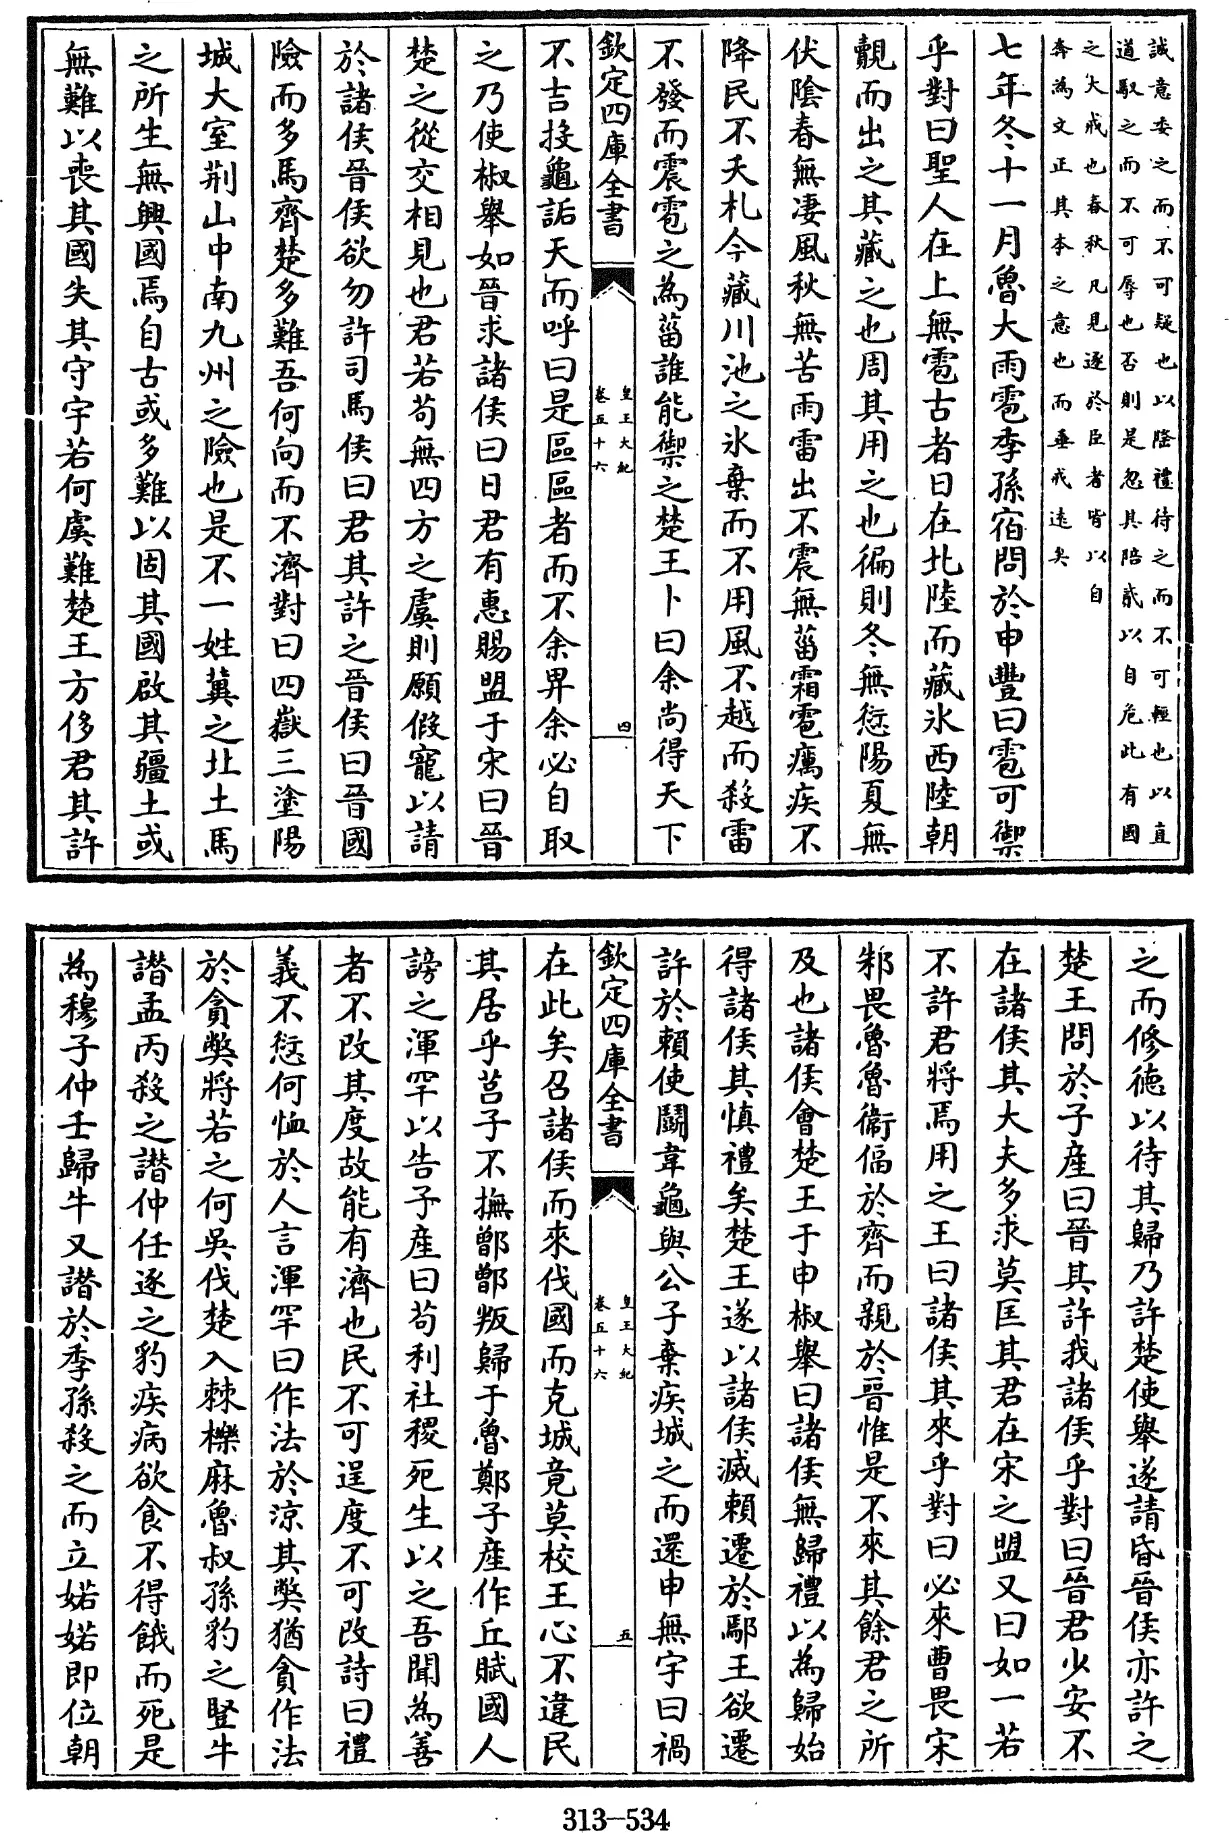 誠意委之而不可疑也以隆禮待之而不可輕也以直
道馭之而不可辱也否則是忽其陪貳以自危此有國
之大戒也春秋凡見逐於臣者皆以自
奔為文正其本之意也而垂戒遠矣
七年冬十一月魯大雨雹季孫宿問於申豐曰雹可禦
乎對曰聖人在上無雹古者日在北陸而藏氷西陸朝
覿而出之其藏之也周其用之也徧則冬無愆陽夏無
伏陰春無凄風秋無苦雨雷出不震無菑霜雹癘疾不
降民不夭札今藏川池之氷棄而不用風不越而殺雷
不發而震雹之為菑誰能禦之楚王卜曰余尚得天下
欽定四庫全書
皇王大紀
卷五十六
四
不吉投龜詬天而呼曰是區區者而不余畀余必自取
之乃使椒舉如晉求諸侯曰日君有惠賜盟于宋曰晉
楚之從交相見也君若苟無四方之虞則願假寵以請
於諸侯晉侯欲勿許司馬侯曰君其許之晉侯曰晉國
險而多馬齊楚多難吾何向而不濟對曰四嶽三塗陽
城大室荆山中南九州之險也是不一姓冀之北土馬
之所生無興國焉自古或多難以固其國啟其疆土或
無難以喪其國失其守宇若何虞難楚王方侈君其許
之而修德以待其歸乃許楚使舉遂請昏晉侯亦許之
楚王問於子產曰晉其許我諸侯乎對曰晉君少安不
在諸侯其大夫多求莫匡其君在宋之盟又曰如一若
不許君將焉用之王曰諸侯其來乎對曰必來曹畏宋
邾畏魯魯衞偪於齊而親於晉惟是不來其餘君之所
及也諸侯會楚王于申椒舉曰諸侯無歸禮以為歸始
得諸侯其慎禮矣楚王遂以諸侯滅賴遷於鄢王欲遷
許於賴使鬭韋龜與公子棄疾城之而還申無宇曰禍
欽定四庫全書
皇王大紀
卷五十六
五
在此矣召諸侯而來伐國而克城竟莫校王心不違民
其居乎莒子不撫鄫鄫叛歸于魯鄭子產作丘賦國人
謗之渾罕以告子產曰苟利社稷死生以之吾聞為善
者不改其度故能有濟也民不可逞度不可改詩曰禮
義不愆何恤於人言渾罕曰作法於涼其獘猶貪作法
於貪獘將若之何吳伐楚入棘櫟麻魯叔孫豹之豎牛
譖孟丙殺之譖仲任逐之豹疾病欲食不得餓而死是
為穆子仲壬歸牛又譖於季孫殺之而立婼婼即位朝
313-534